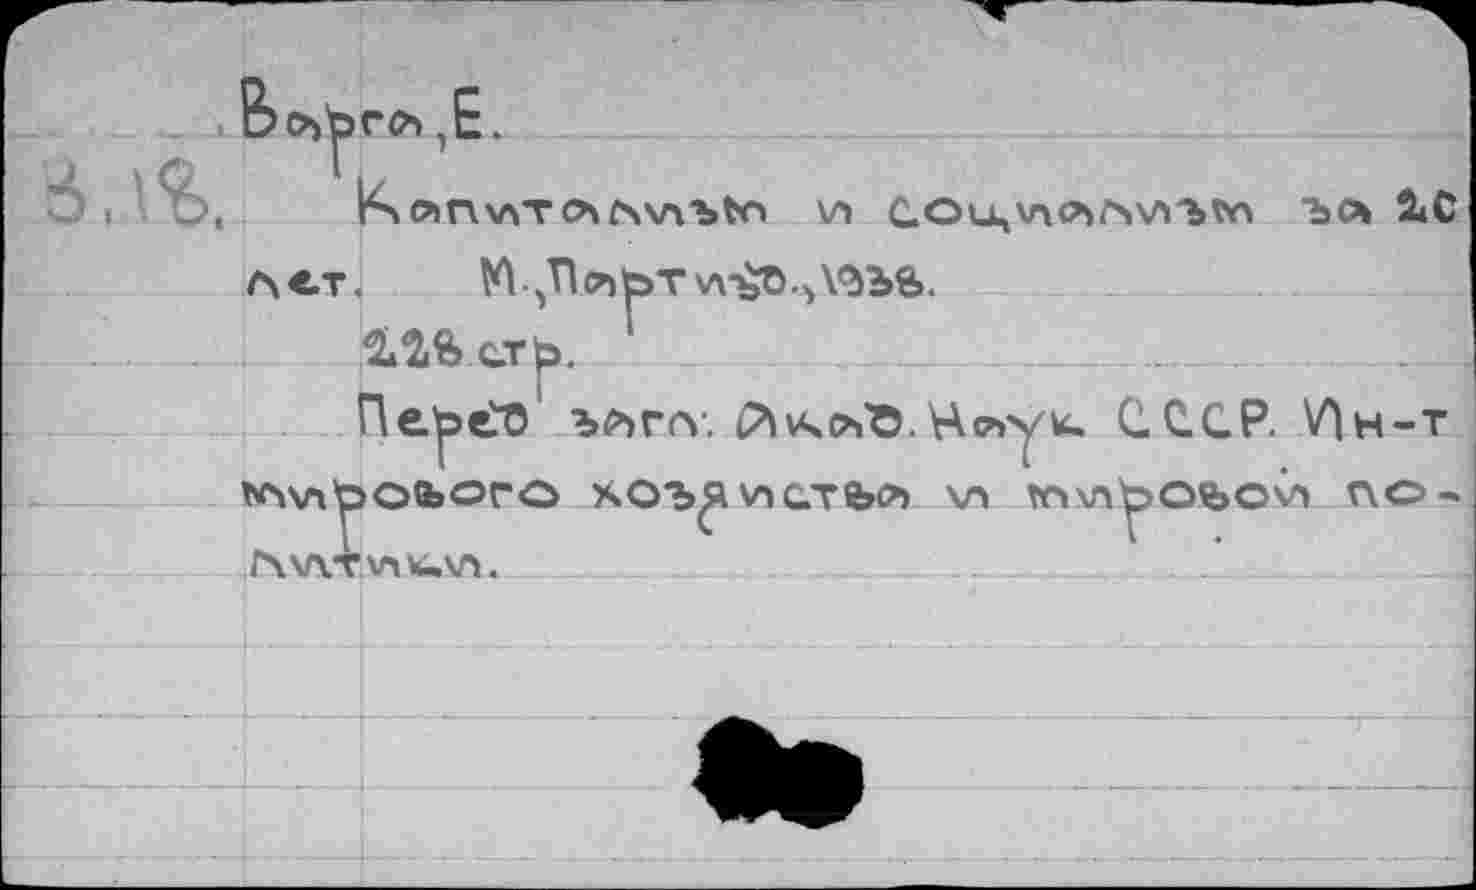 Варга, Е.
В.18.
Капитализм и социализм за 20
лет. М., Партизд., 1938.
228 стр.
Перед загл: Акад. Наук СССР. Ин-т
мирового хозяйства и мировой по-
литики.